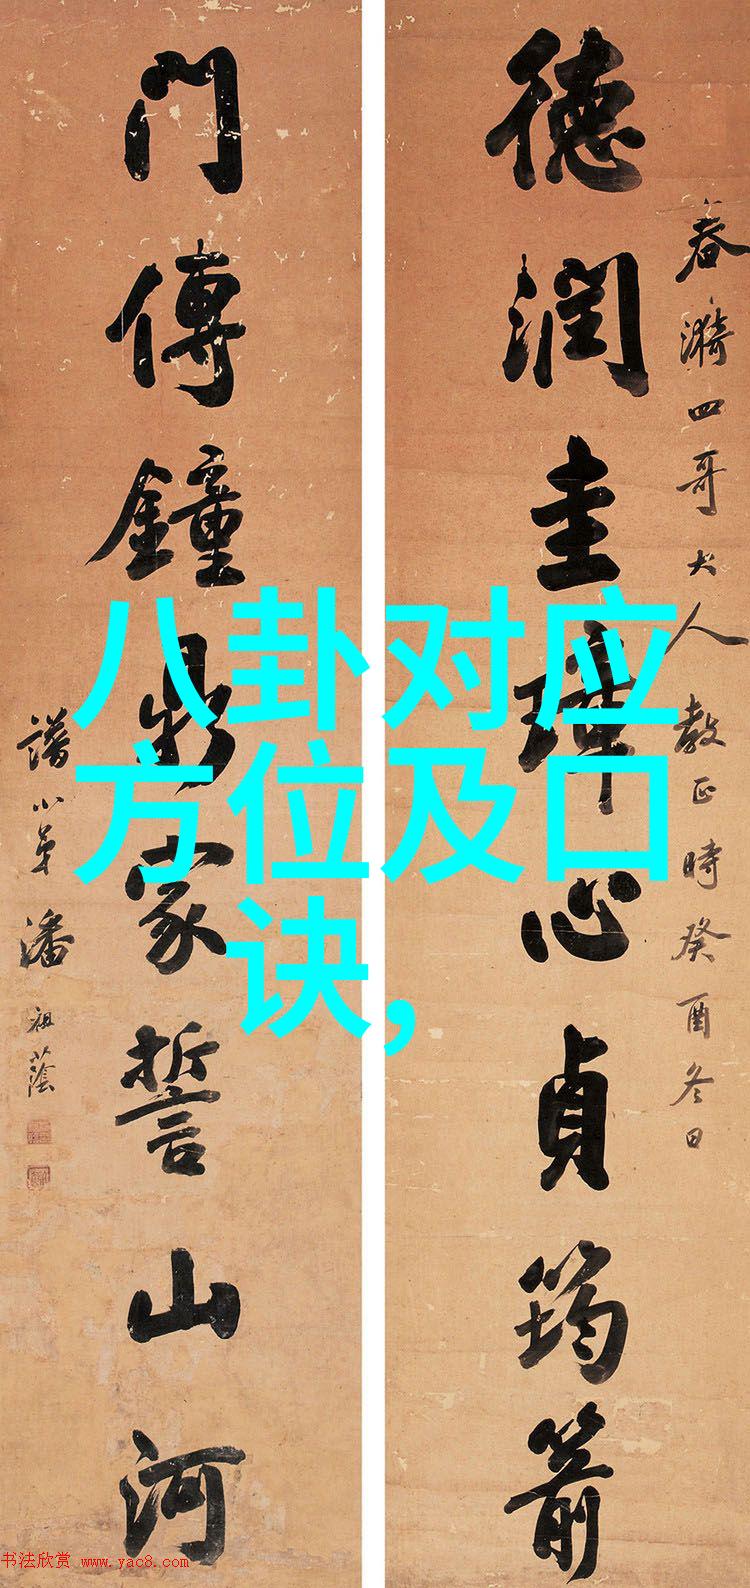 德潤圭璋心貞筠箭
春漪四哥大人教正時癸酉冬日
門傳鐘鼎家誓山河
譜小弟潘祖蔭
八卦对应
方位及口
诀,
书法欣赏 www.yac8.com